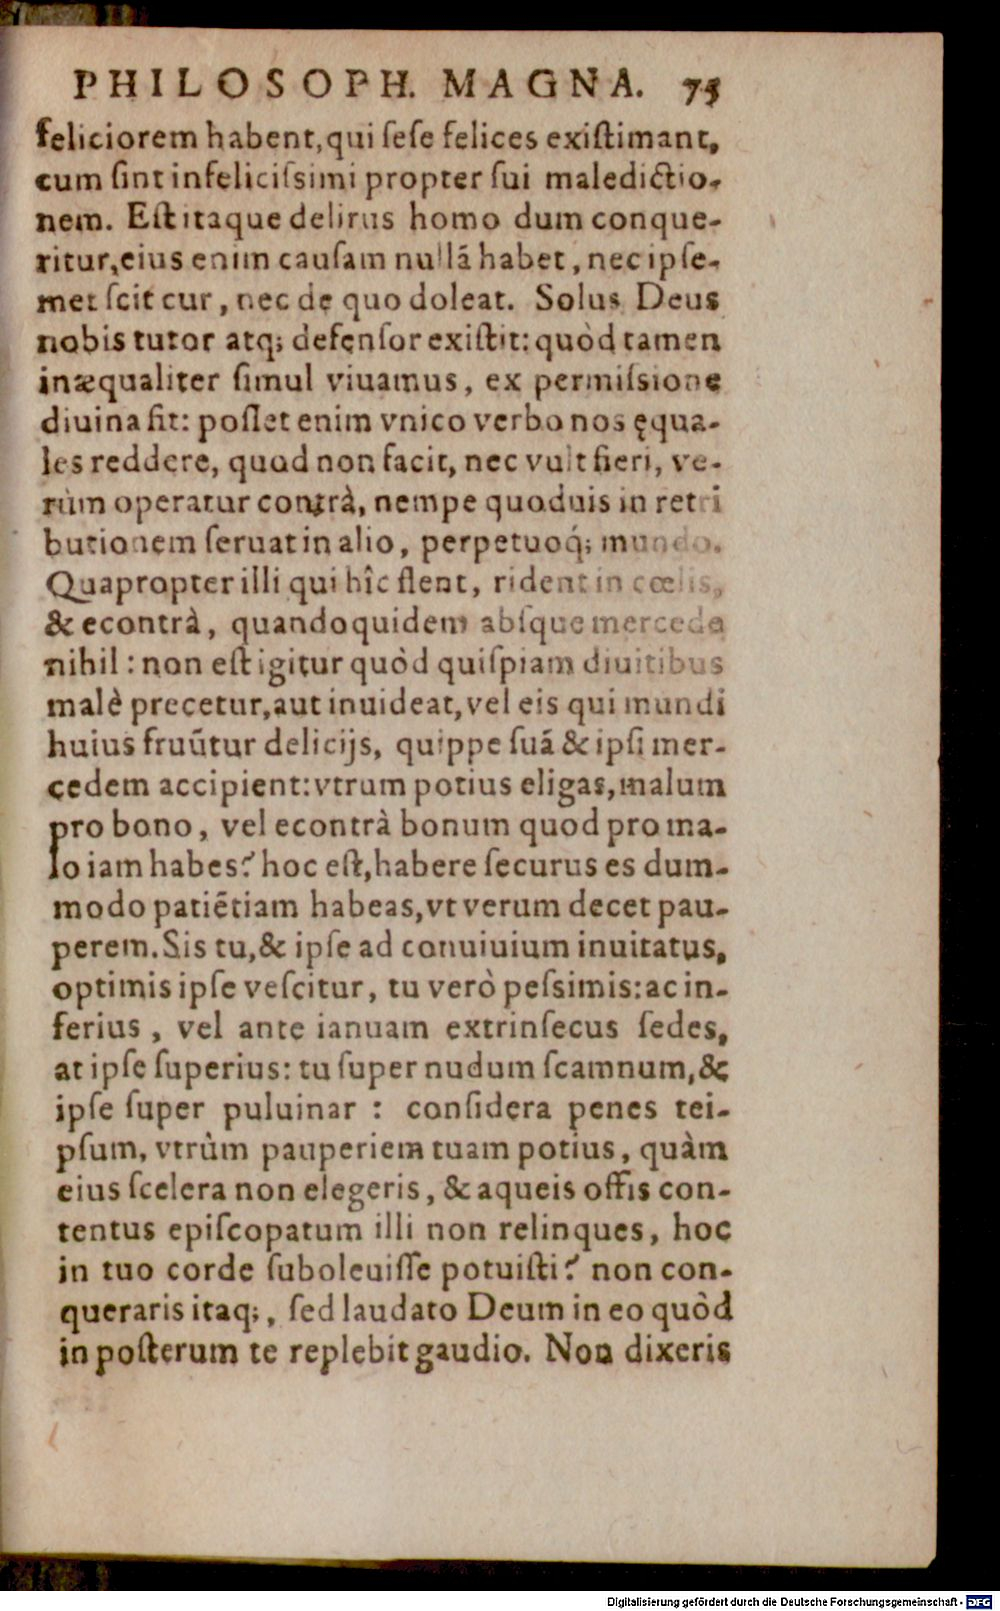 PHILOSOPH. MAGNA. 75
feliciorem habent, qui ſeſe felices exiſtimant,
cum ſint infeliciſsimi propter ſui maledictio-
nem. Eſt itaque delirus homo dum conque-
ritur, eius enim cauſam nullã habet, nec ipſe-
met ſcit cur, nec de quo doleat. Solus Deus
nobis tutor atq; defenſor exiſtit: quòd tamen
inæqualiter ſimul viuamus, ex permiſsione
diuina fit: poſſet enim vnico verbo nos ęqua-
les reddere, quod non facit, nec vult fieri, ve-
rùm operatur contrà, nempe quoduis in retri
butionem ſeruat in alio, perpetuoq́; mundo.
Quapropter illi qui hîc flent, rident in cœlis,
& econtrà, quandoquidem abſque mercede
nihil: non eſt igitur quòd quiſpiam diuitibus
malè precetur, aut inuideat, vel eis qui mundi
huius fruũtur delicijs, quippe ſuã & ipſi mer-
cedem accipient: vtrum potius eligas, malum
pro bono, vel econtrà bonum quod pro ma-
lo iam habes? hoc eſt, habere ſecurus es dum-
modo patiẽtiam habeas, vt verum decet pau-
perem. Sis tu, & ipſe ad conuiuium inuitatus,
optimis ipſe veſcitur, tu verò peſsimis: ac in-
ferius, vel ante ianuam extrinſecus ſedes,
at ipſe ſuperius: tu ſuper nudum ſcamnum, &
ipſe ſuper puluinar : conſidera penes tei-
pſum, vtrùm pauperiem tuam potius, quàm
eius ſcelera non elegeris, & aqueis offis con-
tentus epiſcopatum illi non relinques, hoc
in tuo corde ſuboleuiſſe potuiſti? non con-
queraris itaq;, ſed laudato Deum in eo quòd
in poſterum te replebit gaudio. Non dixeris
Digitalisierung gefördert durch die Deutsche Forschungsgemeinschaft - DFG